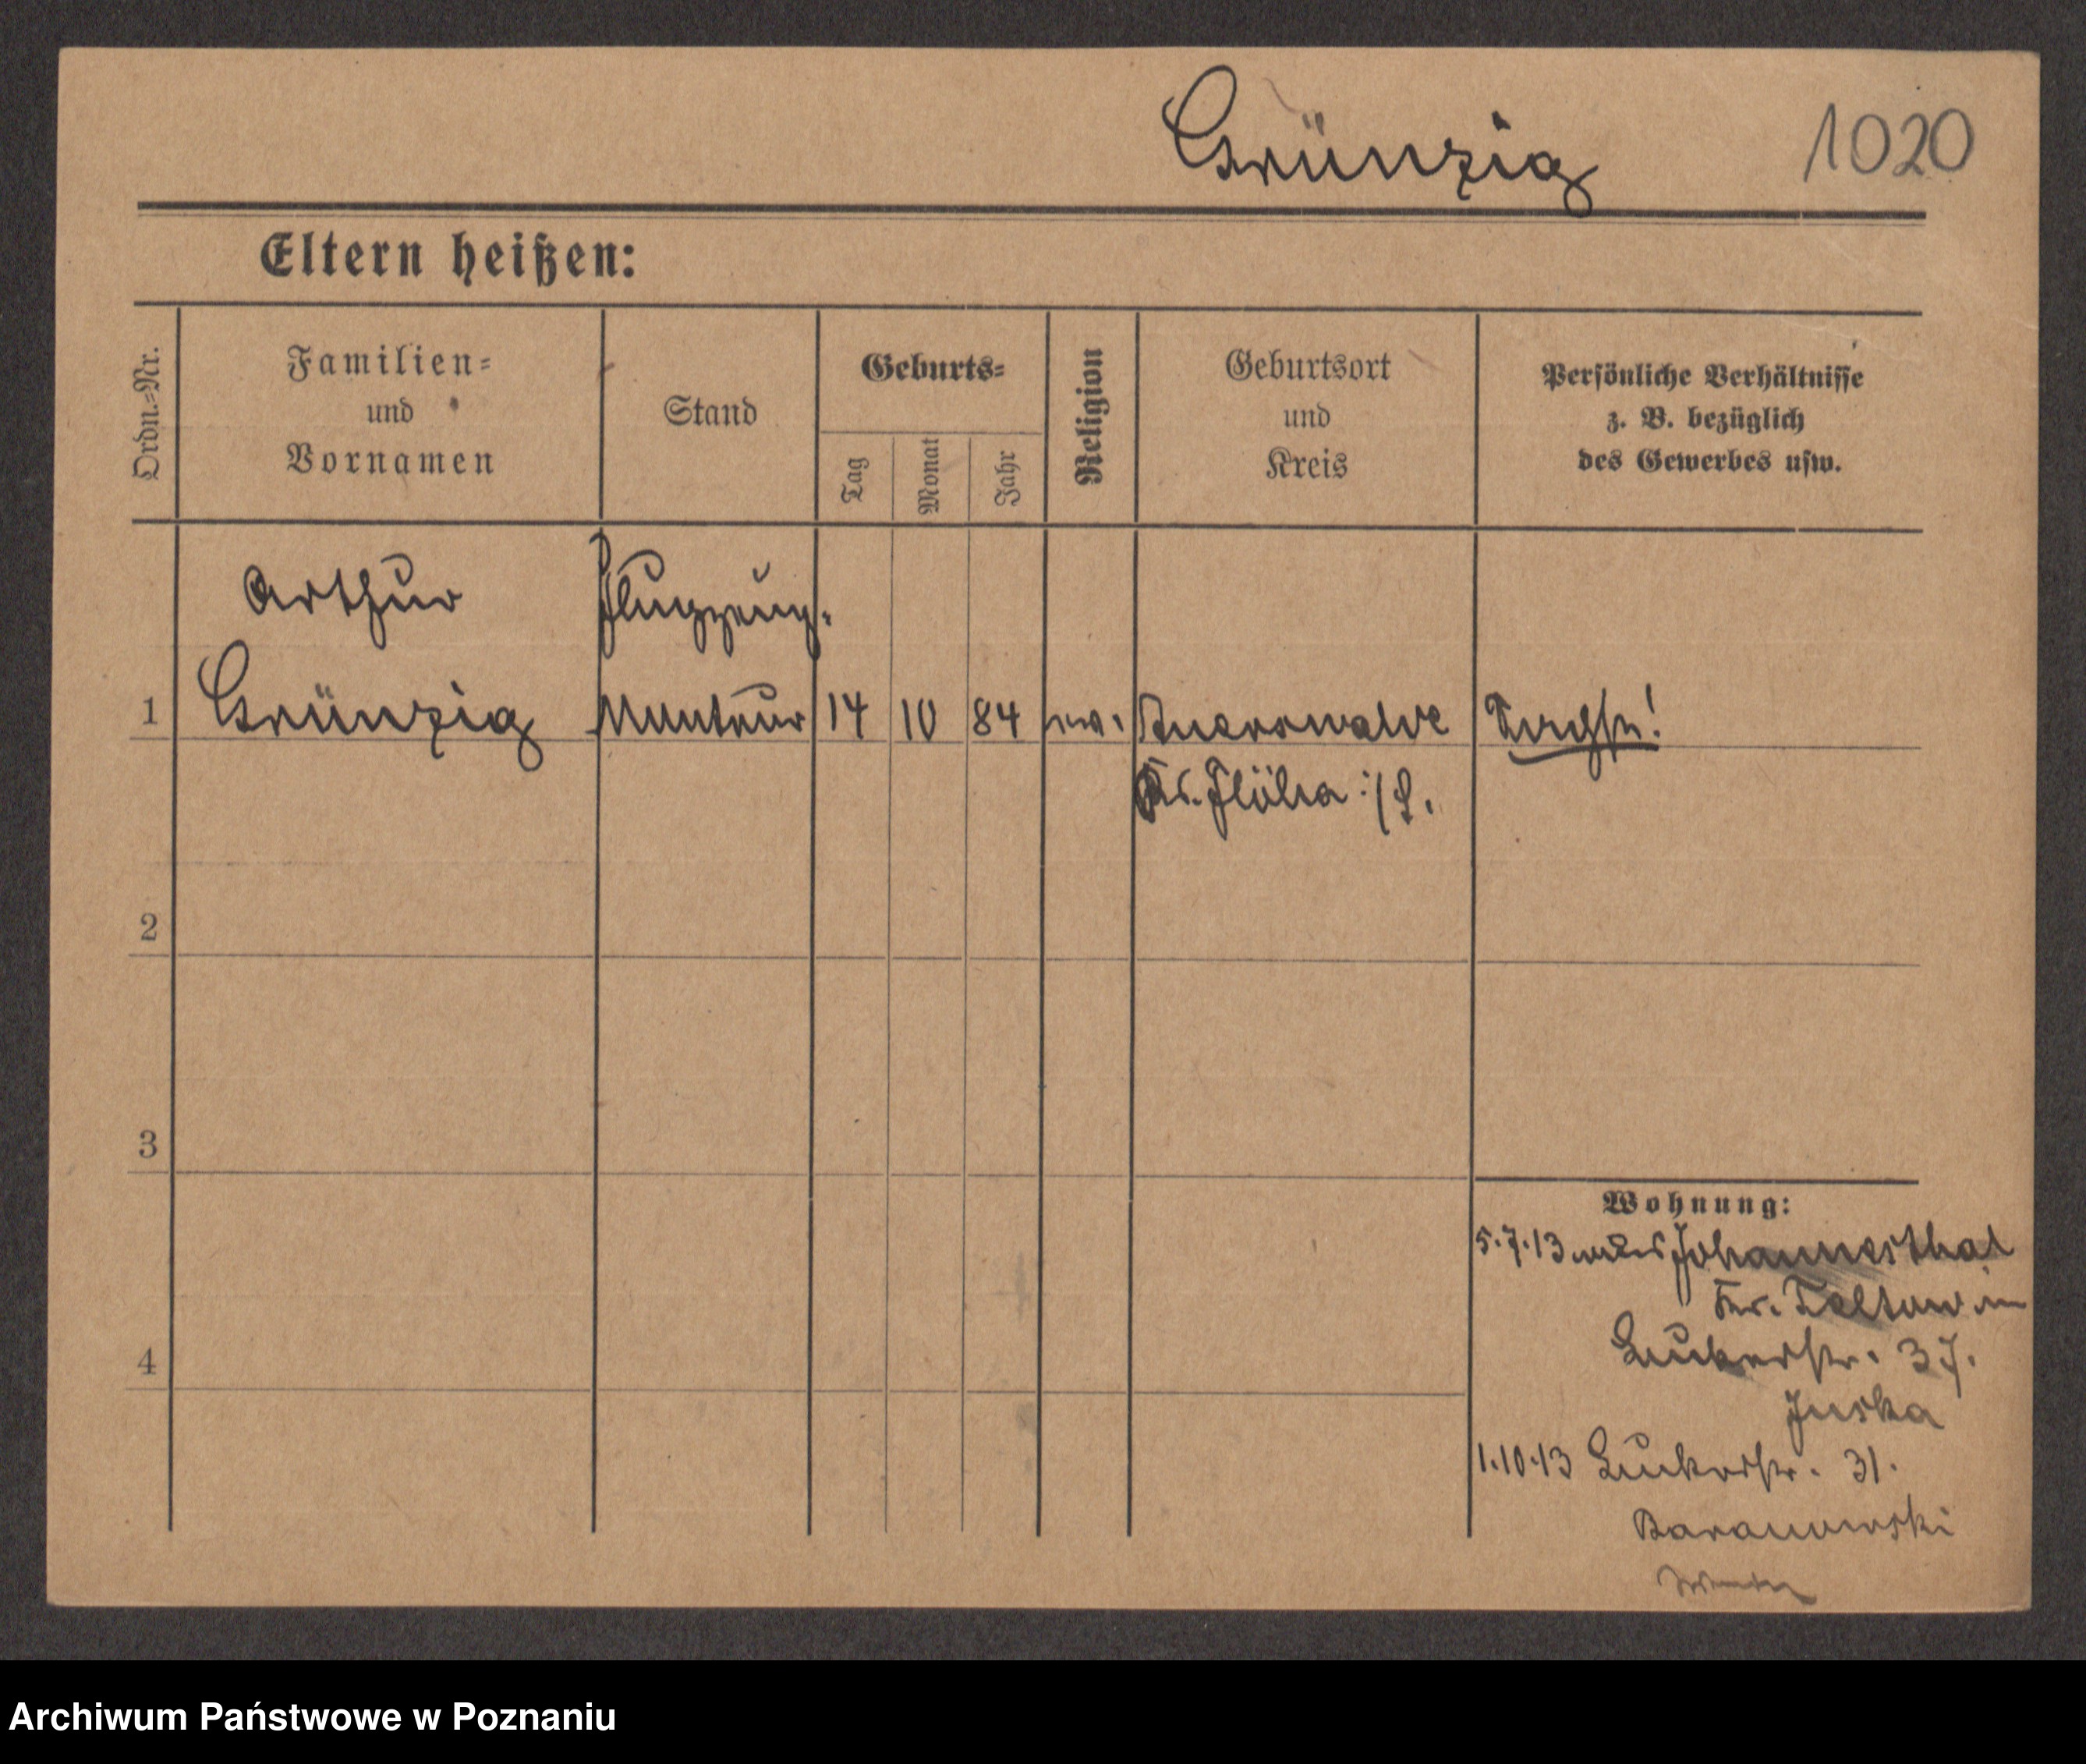 Grünzig 1020
Eltern heißen:
Ordn.=Nr.
Familien=
und
Vornamen
Stand
Geburts=
Tag
Monat
Jahr
Religion
Geburtsort
und
Kreis
Persönliche Verhältnisse
z. B. bezüglich
des Gewerbes usw.
Arthur Flugzeug-
1 Grünzig Monteur 14 10 84 ev. Auerswalde Sachse!
Kr. Flöha i/S.
2
3
4
Wohnung:
5.7.13 Johannesthal
Kr. Teltow
37.
Juska
1.10.13 31.
Baranowski
Archiwum Państwowe w Poznaniu